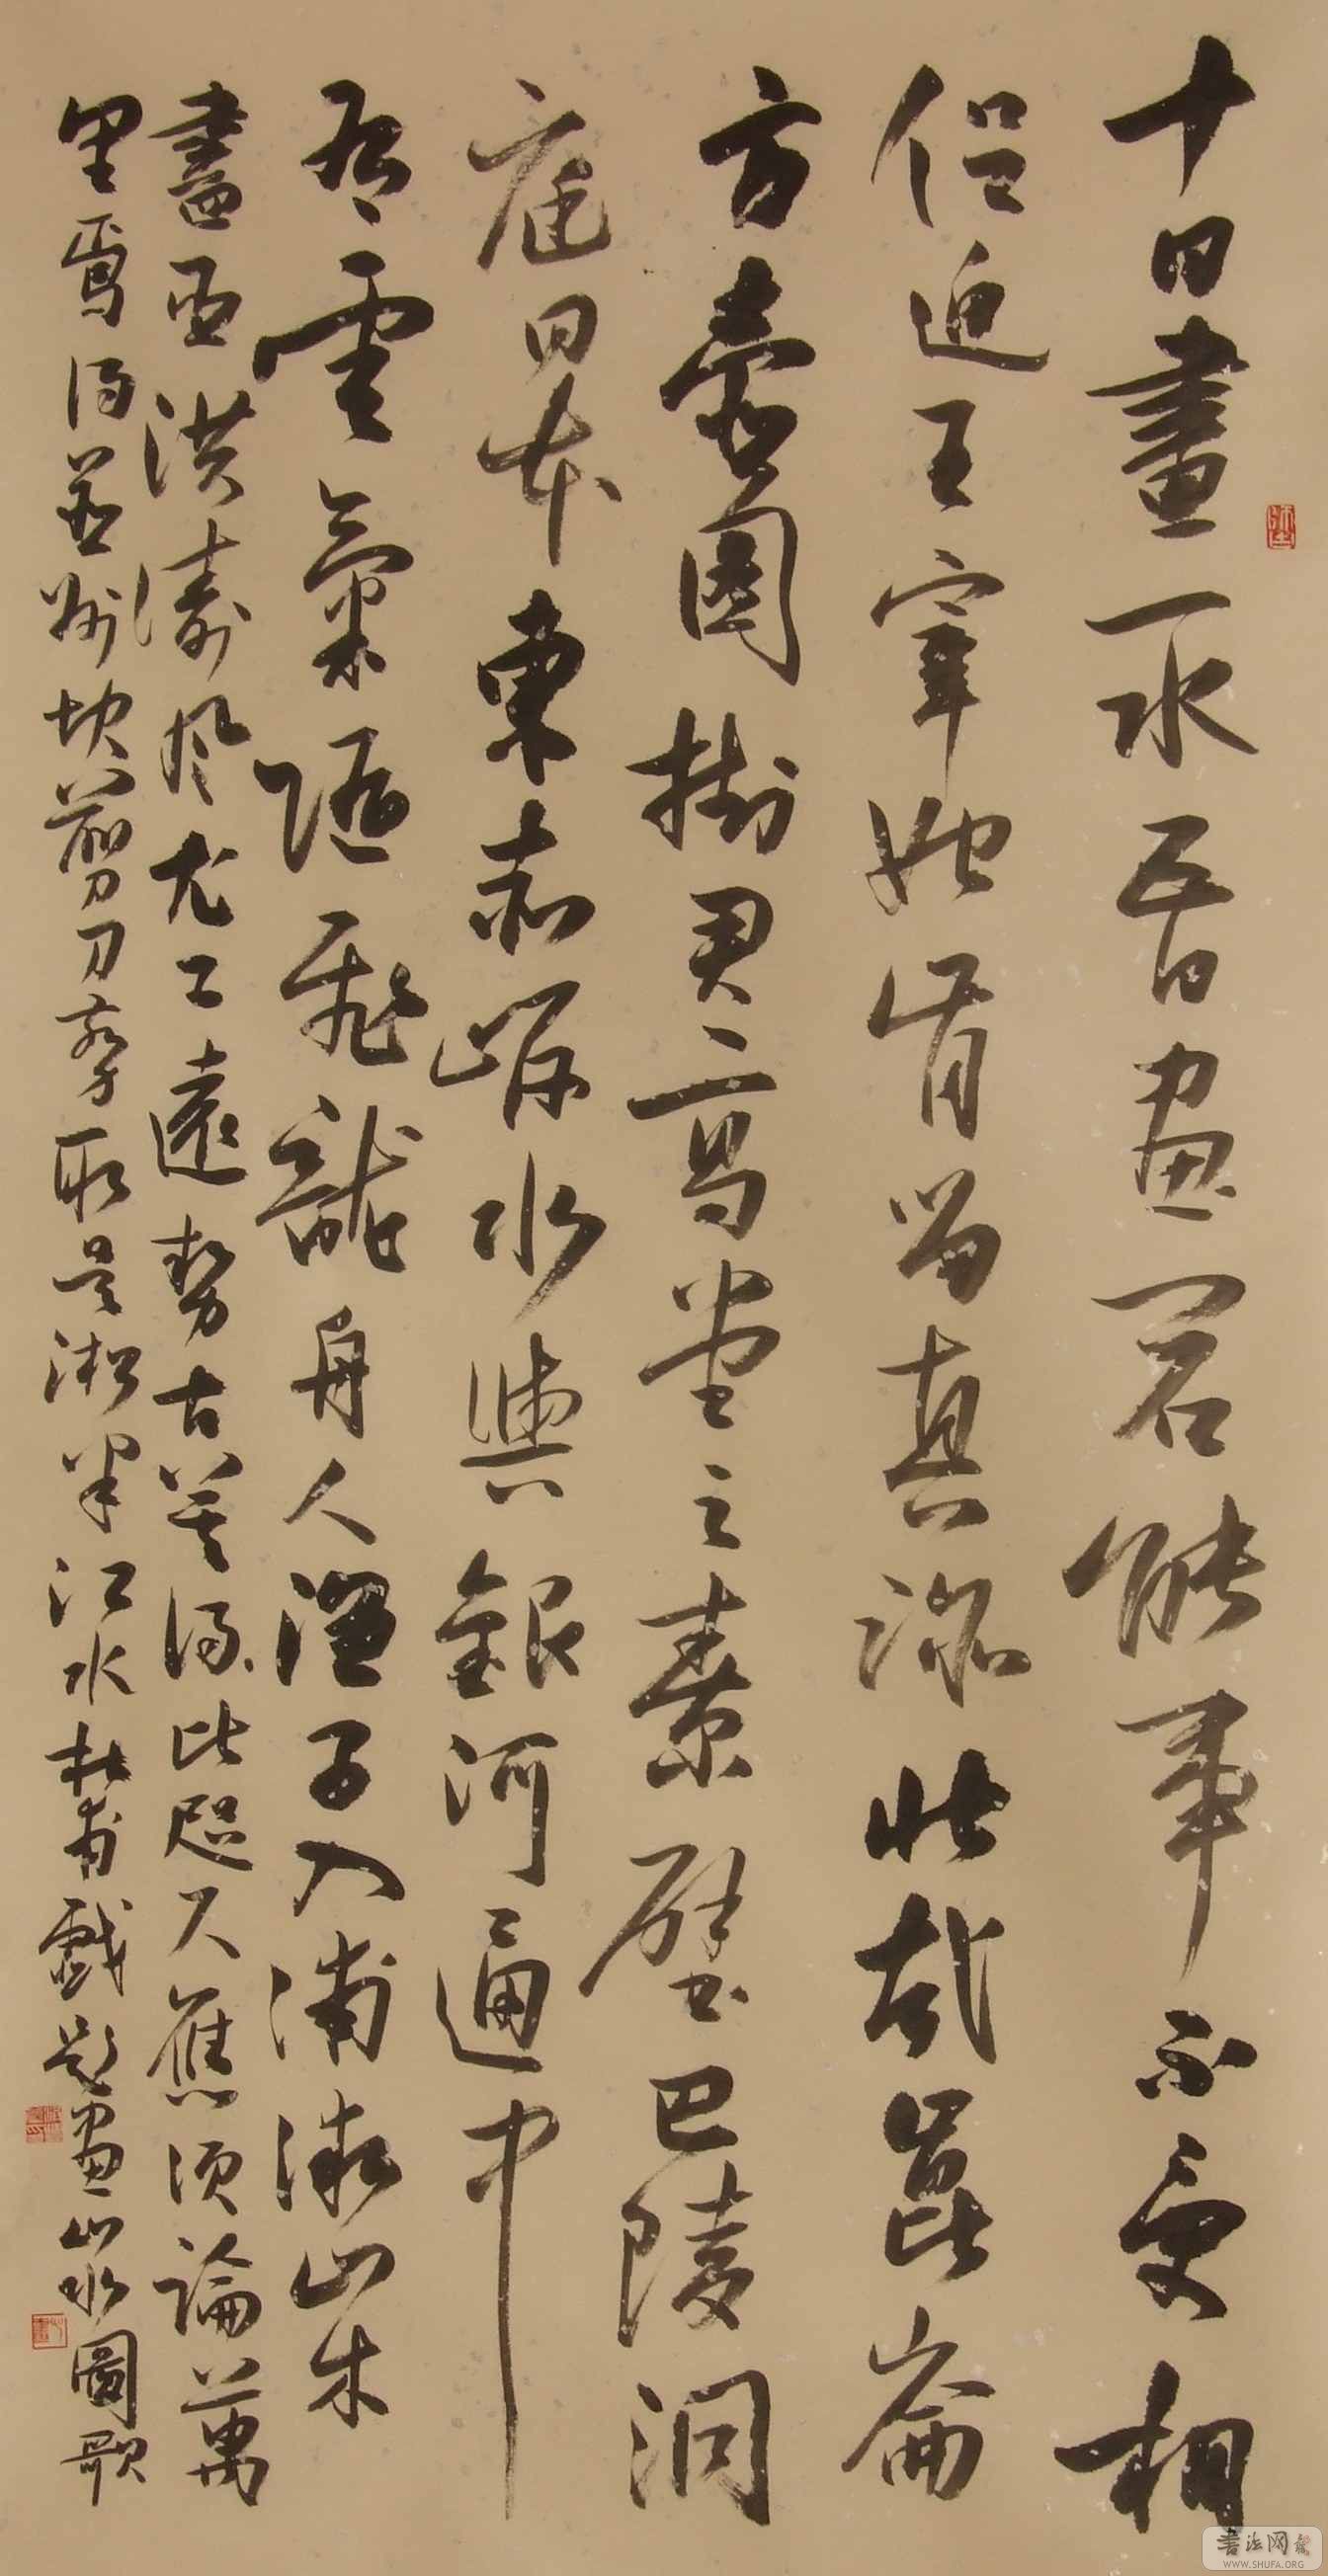 十日畫一水五日畫一石能事不受相
促迫王宰始肯留真跡壯哉崑崙
方壺圖掛君高堂之素壁巴陵洞
庭日本東赤岸水與銀河通中
有雲氣隨飛龍舟人漁子入浦漵山木
盡亞洪濤風尤工遠勢古莫得比咫尺應須論萬
里焉得并州快剪刀剪取吳淞半江水杜甫戲題畫山水圖歌
書法网
WWW.SHUFA.ORG